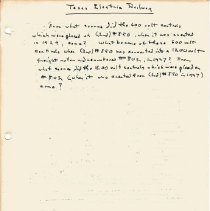 Texas Electric Railway
From what source did the 600 volt controls
which were placed on (2nd) #350, when it was created
in 1929, come? What became of these 600 volt
controls when (2nd) #350 was converted into a 1200 volt
freight motor and renumbered #502, in 1937? From
what source did the 1200 volt controls which were placed on
#502 (when it was created from (2nd) #350 in 1937)
come?